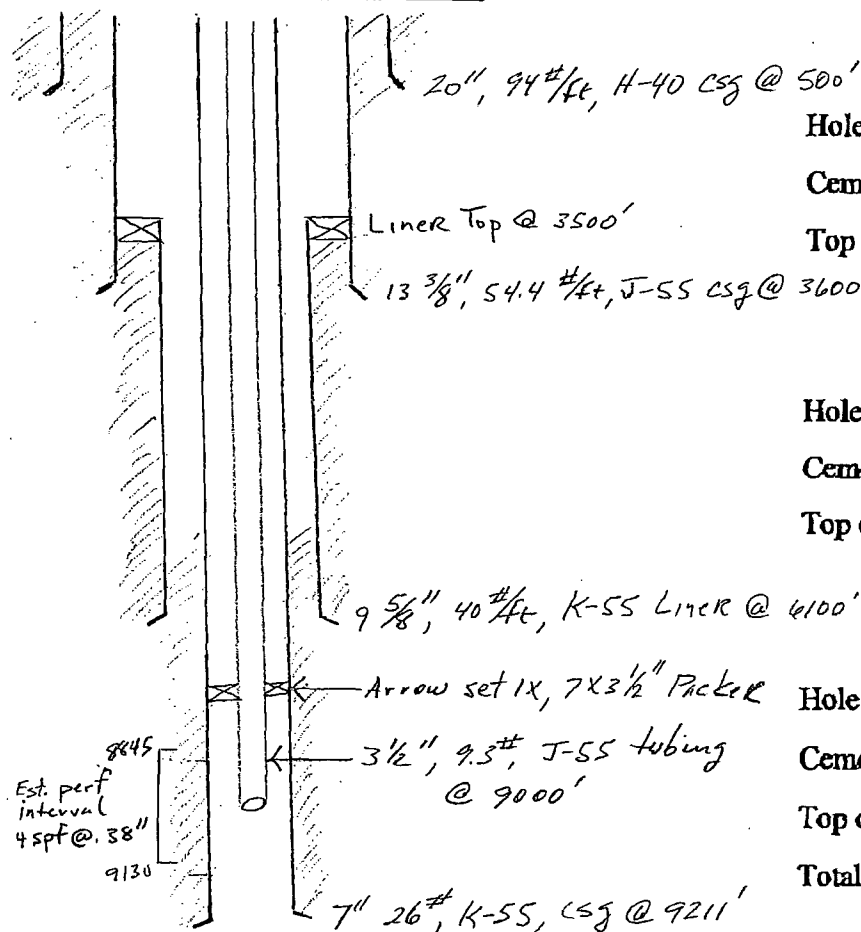 20", 94 #/ft, H-40 csg @ 500'
Hole
Cem
Top
Liner Top @ 3500'
13 3/8", 54.4 #/ft, J-55 csg @ 3600
Hole
Cem
Top o
9 5/8", 40 #/ft, K-55 Liner @ 6100'
Arrow set 1X, 7X3 1/2" Packer
Hole
Ceme
3 1/2", 9.3#, J-55 tubing
@ 9000'
Top o
Total
8845
Est. perf
interval
4 spf @ .38"
9130
7" 26#, K-55, csg @ 9211'